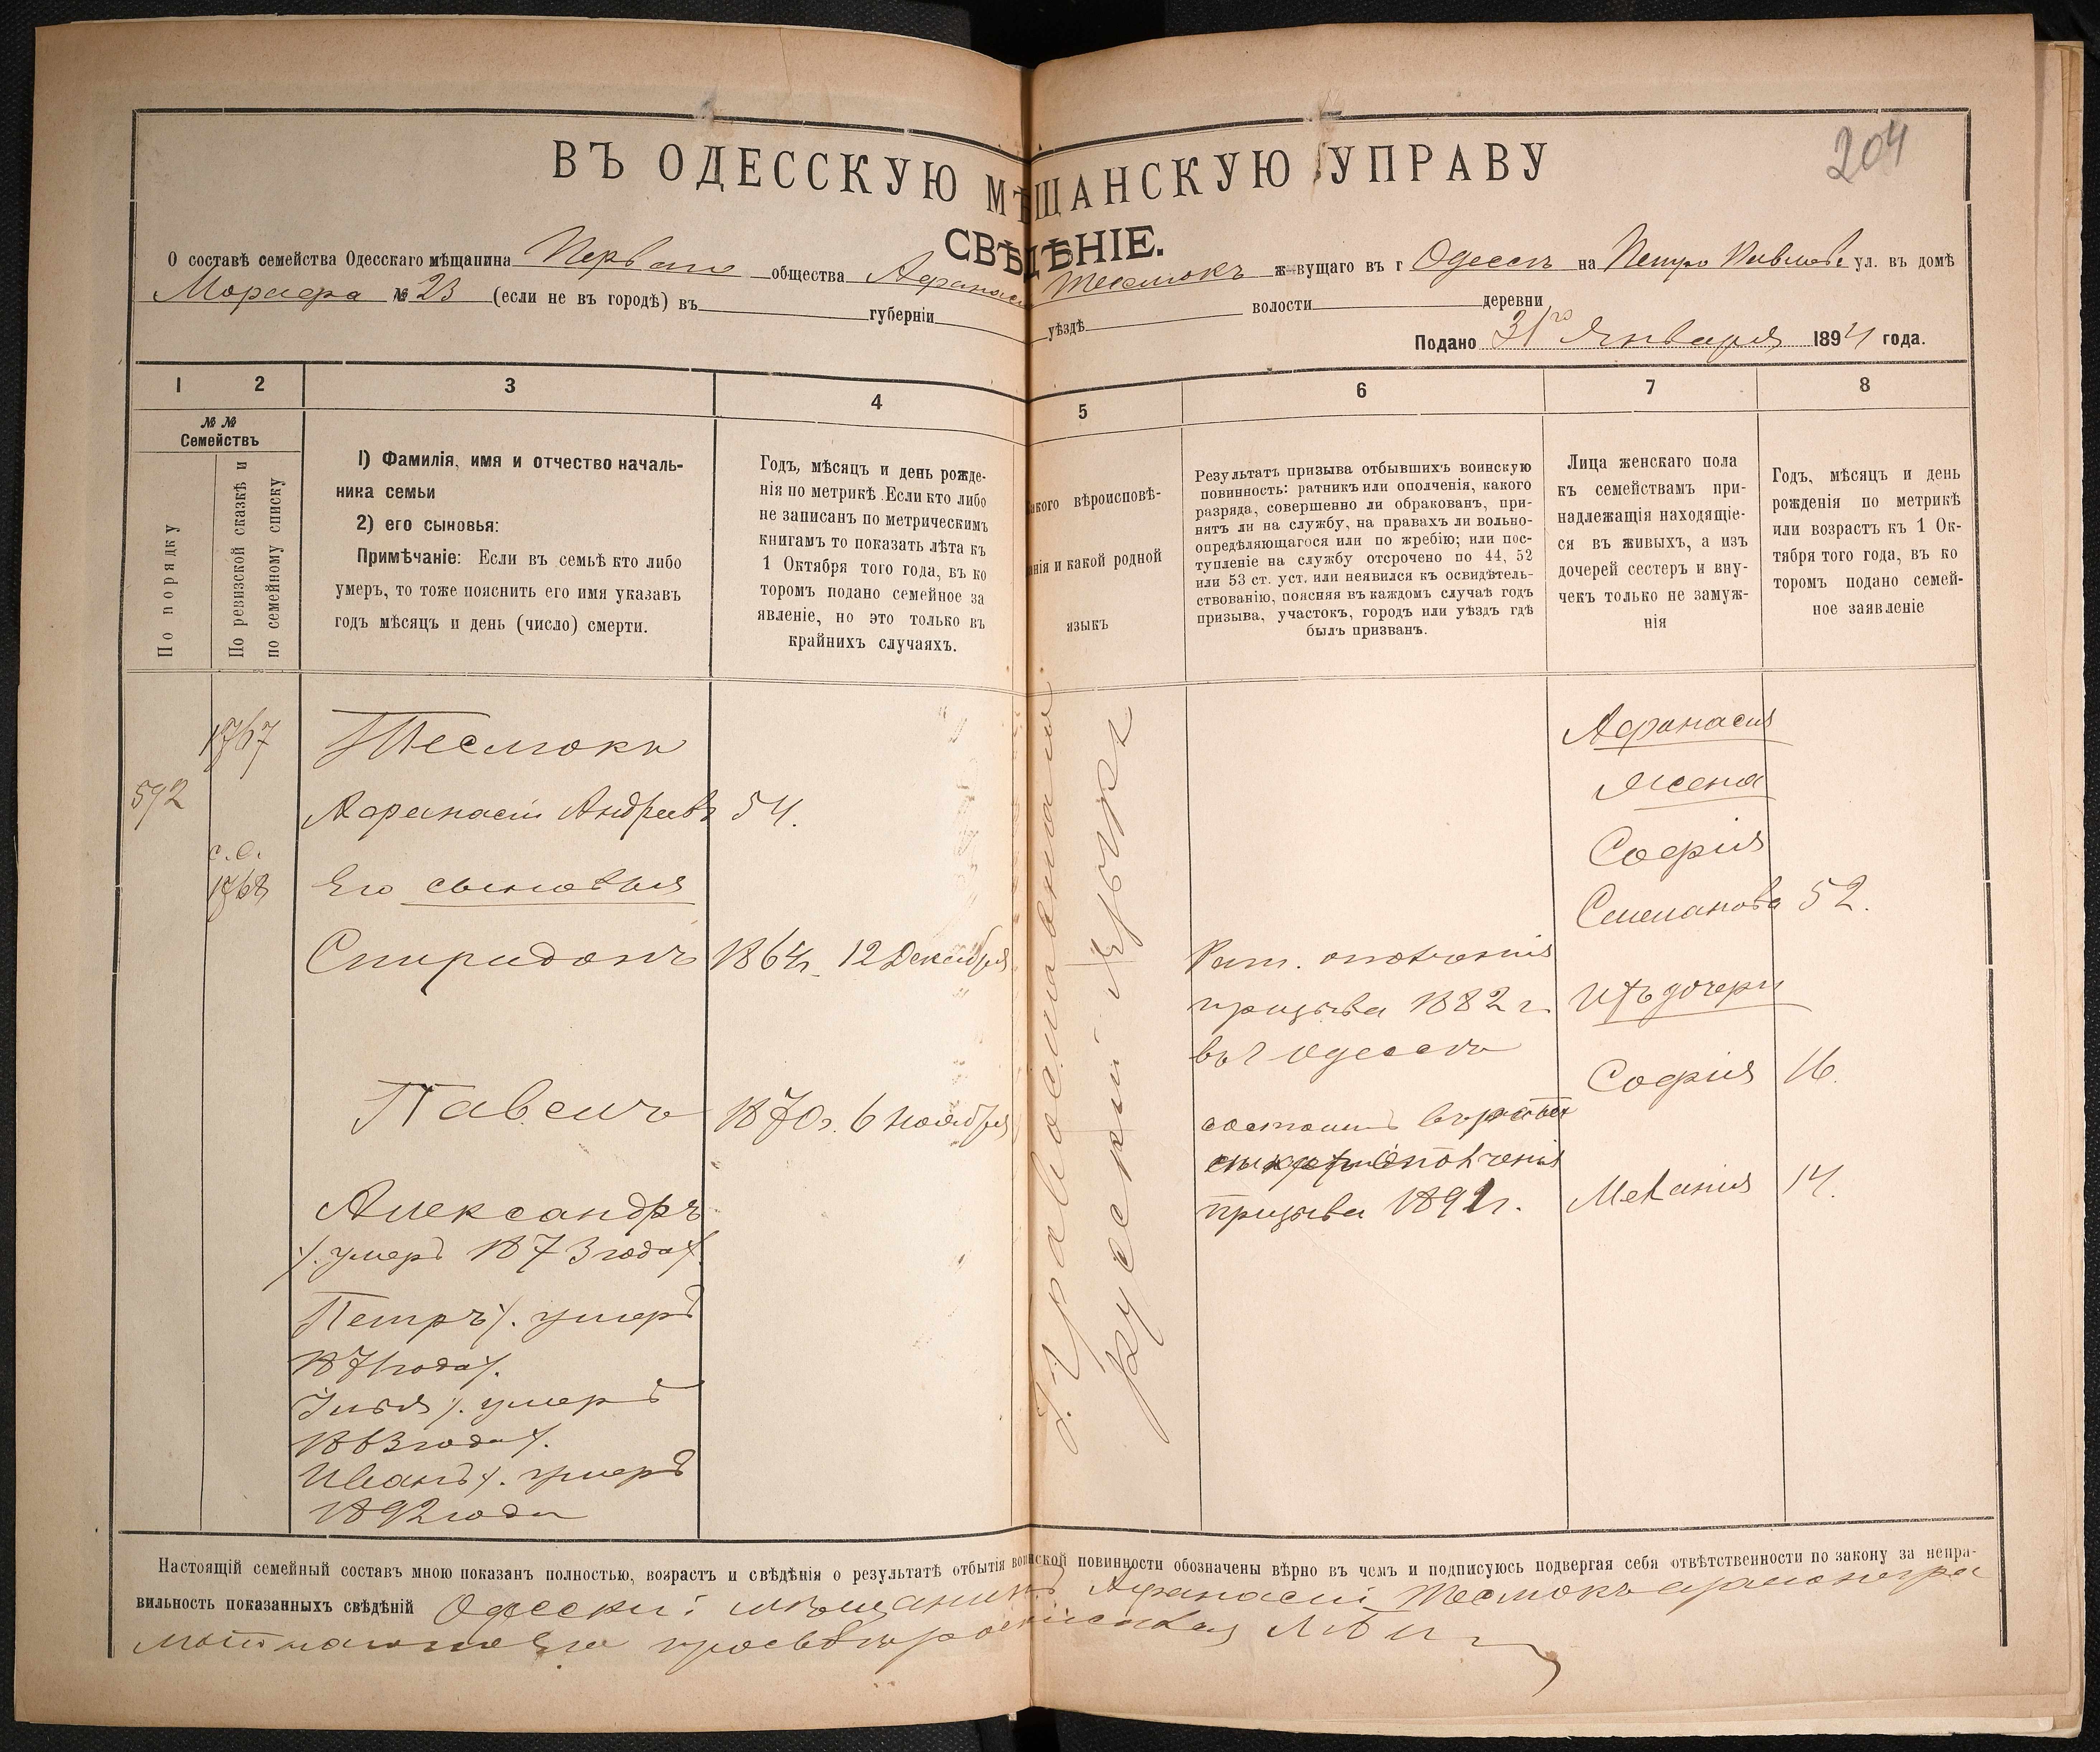 204
ВЪ ОДЕССКУЮ МѢЩАНСКУЮ УПРАВУ
СВѢДѢНІЕ.
О составѣ семейства Одесскаго мѣщанина Перваго общества Афанасія Теслюкъ живущаго въ г Одессѣ на Петро Павлов. ул. въ домѣ
№ 23 (если не въ городѣ) въ губерніи уѣздѣ волости деревни
Подано 31го Января 1894 года.
1 2 3 4 5 6 7 8
№ №
Семействъ
По порядку
По ревизской сказкѣ и
по семейному списку
1) Фамилія, имя и отчество началь-
ника семьи
2) его сыновья:
Примѣчаніе: Если въ семьѣ кто либо
умеръ, то тоже пояснить его имя указавъ
годъ мѣсяцъ и день (число) смерти.
Годъ, мѣсяцъ и день рожде-
нія по метрикѣ. Если кто либо
не записанъ по метрическимъ
книгамъ то показать лѣта къ
1 Октября того года, въ ко
торомъ подано семейное за
явленіе, но это только въ
крайнихъ случаяхъ.
какого вѣроисповѣ-
анія и какой родной
языкъ
Результатъ призыва отбывшихъ воинскую
повинность: ратникъ или ополченія, какого
разряда, совершенно ли обракованъ, при-
нятъ ли на службу, на правахъ ли вольно-
опредѣляющагося или по жребію; или пос-
тупленіе на службу отсрочено по 44, 52
или 53 ст. уст. или неявился къ освидѣтель-
ствованію, поясняя въ каждомъ случаѣ годъ
призыва, участокъ, городъ или уѣздъ гдѣ
былъ призванъ.
Лица женскаго пола
къ семействамъ при-
надлежащія находящіе-
ся въ живыхъ, а изъ
дочерей сестеръ и вну-
чекъ только не замуж-
нія
Годъ, мѣсяцъ и день
рожденія по метрикѣ
или возрастъ къ 1 Ок-
тября того года, въ ко
торомъ подано семей-
ное заявленіе
1767
Теслюкъ
592
Афанасій Андреевъ 54.
с. о.
1768
Его сыновья
Спиридонъ 1864г. 12 Декабря
Павелъ 1870г. 6 Ноября
Александръ
/. умеръ 1873 года/.
Петръ /. умеръ
1871 года /.
Илья /. умеръ
1863 года /.
Иванъ /. умеръ
1892 года
Православнаго
Русскій языкъ
Рат. ополченія
призыва 1882 г.
въ г Одессѣ
состоитъ
ополченія
призыва 1891г.
Афанасія
жена
Софія
52.
Ихъ дочери
Софія 16.
Меланія 14.
Настоящій семейный составъ мною показанъ полностью, возрастъ и свѣдѣнія о результатѣ отбытія воинской повинности обозначены вѣрно въ чемъ и подписуюсь подвергая себя отвѣтственности по закону за непра-
вильность показанныхъ свѣдѣній Одескій мѣщанинъ Афанасій Теслюкъ